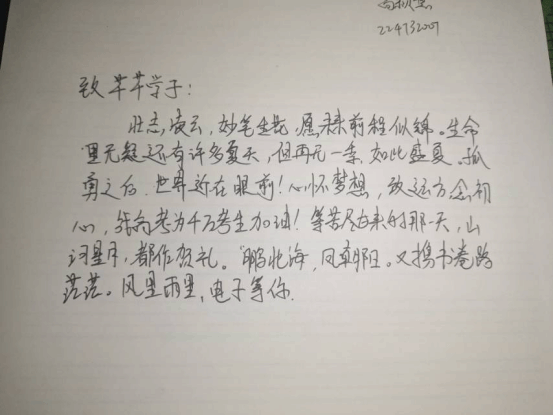 224732007
致莘莘学子:
壮志凌云,妙笔生花,愿未来前程似锦。生命
里无疑还有许多夏天,但再无一季,如此盛夏。孤
勇之后,世界近在眼前!心怀梦想,致远方念初
心,我为千万考生加油!等苦尽甘来的那一天,山
河星月,都作贺礼。"鹏北海,凤朝阳。又携书卷路
茫茫。风里雨里,电子等你.